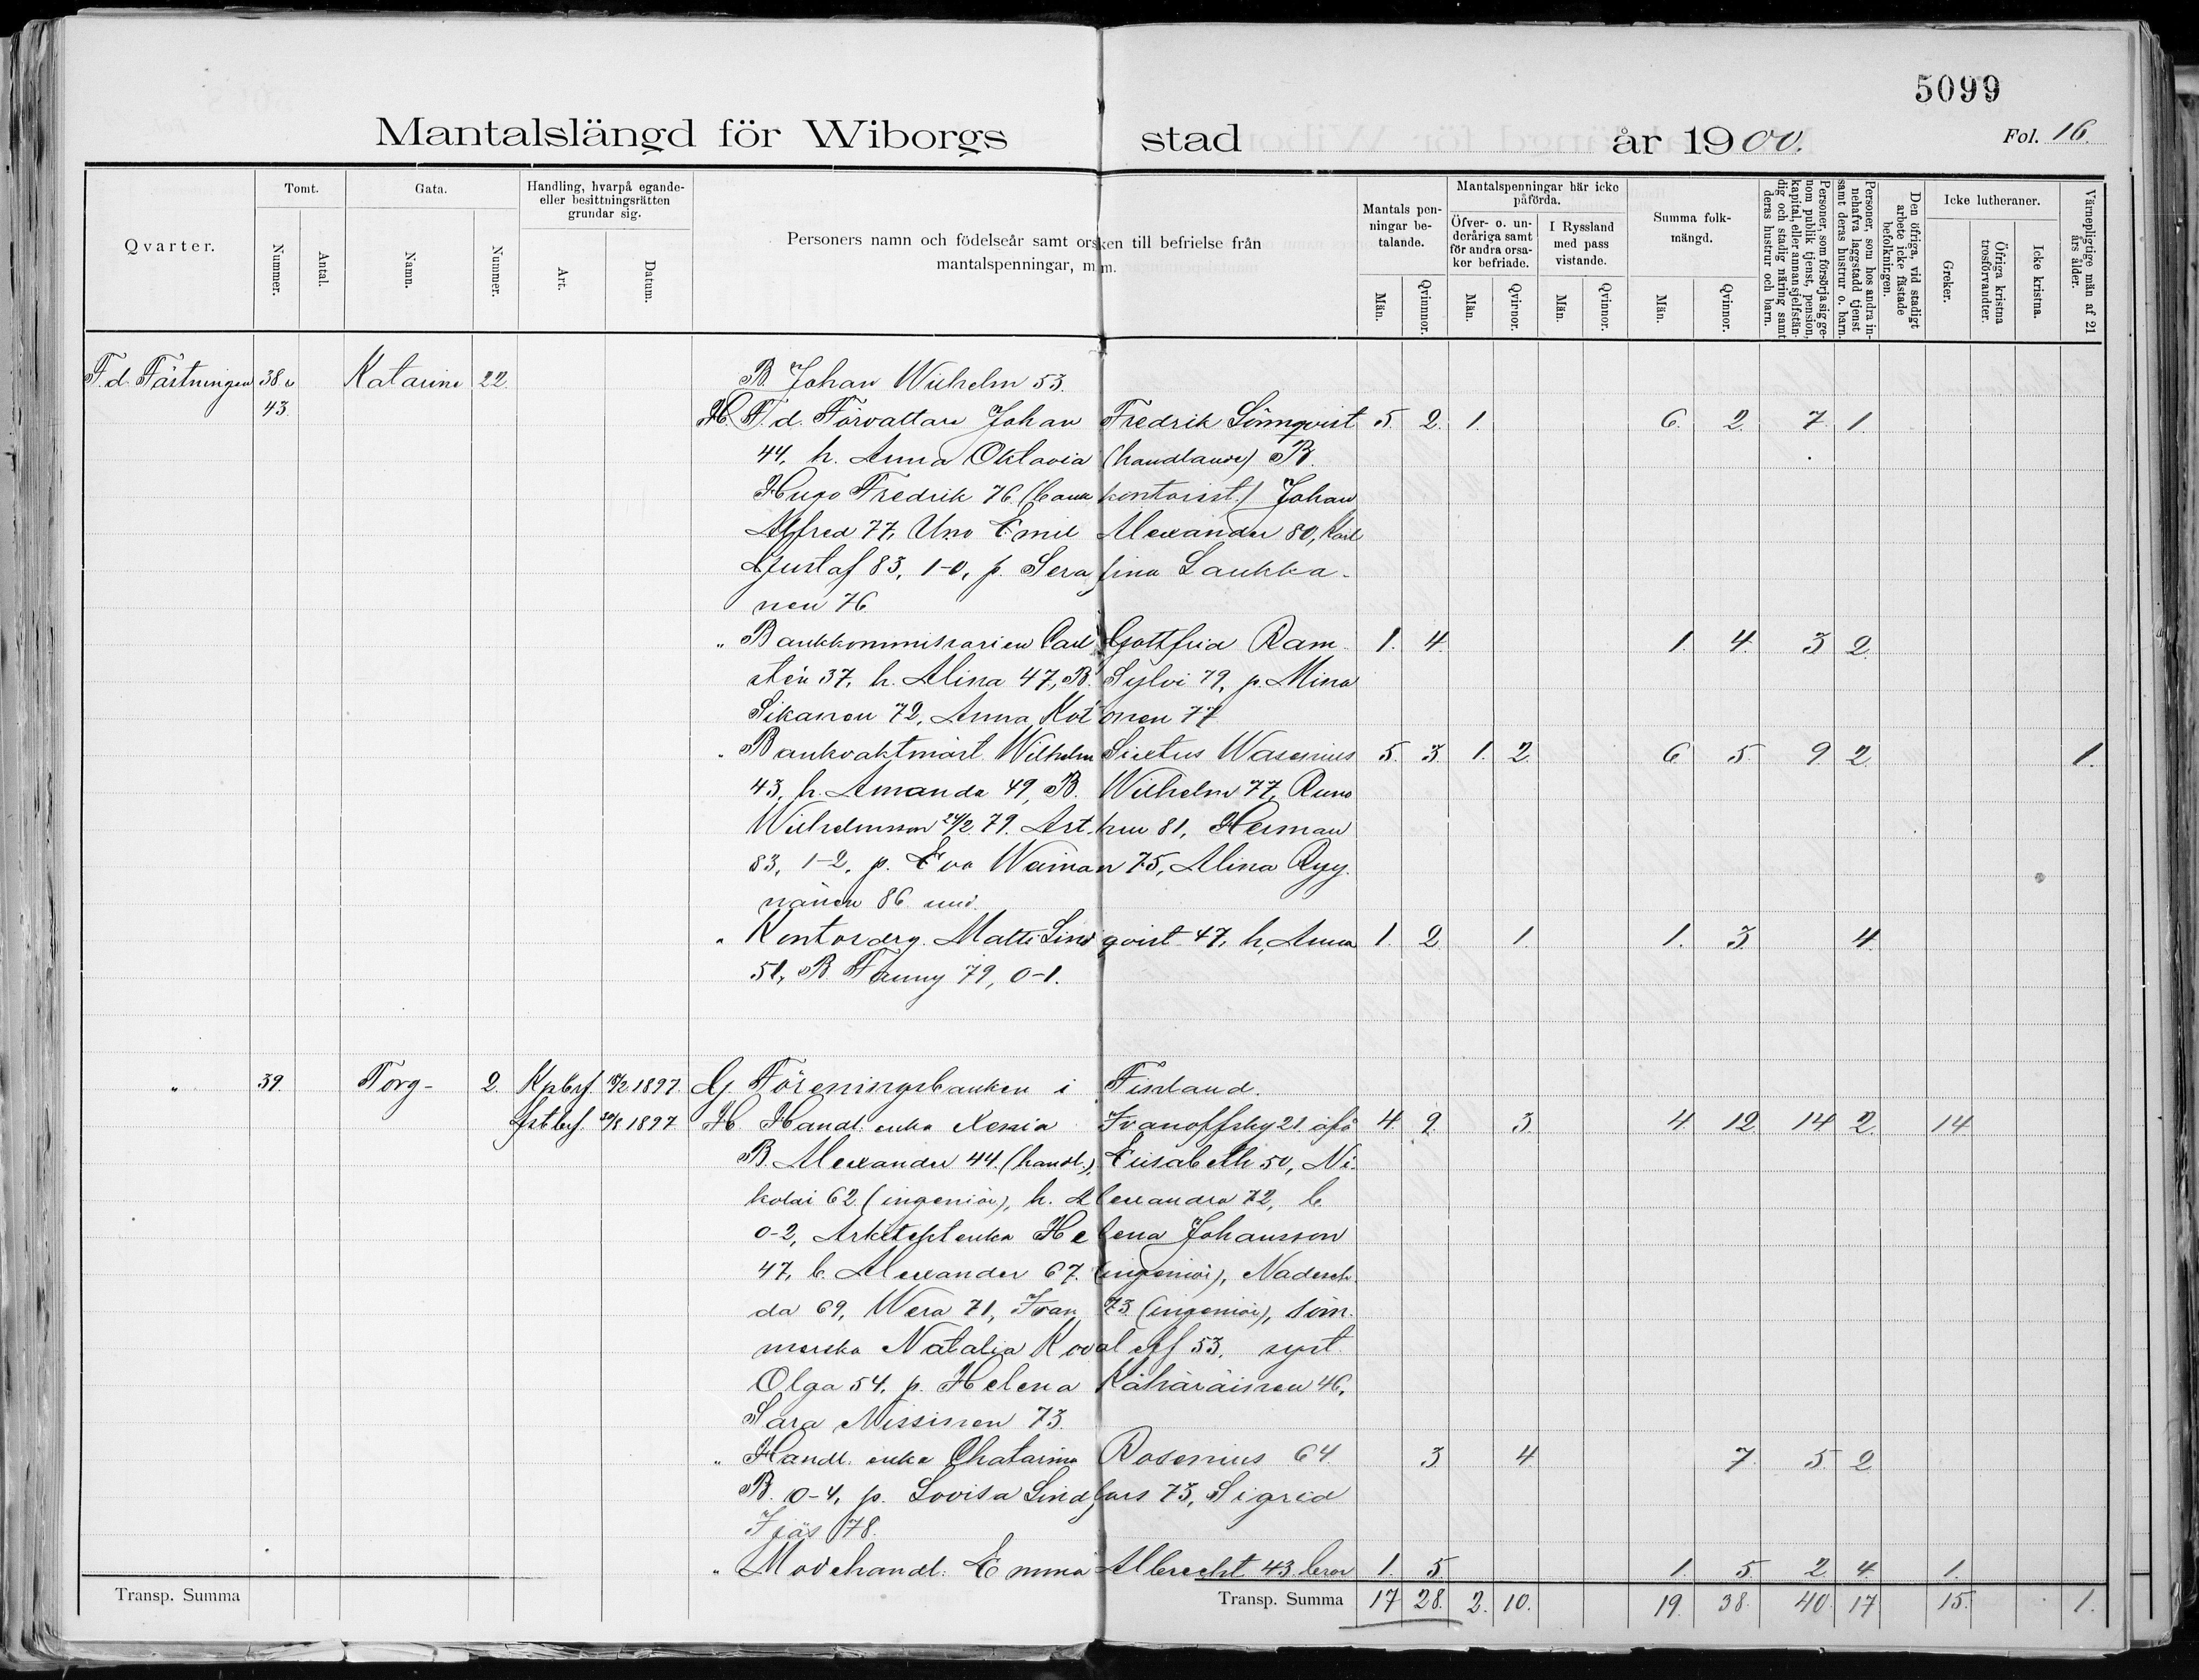 5099
Mantalslängd för Wiborgs stad år 1900. Fol. 16.
Qvarter. Tomt. Gata. Handling, hvarpå egande- eller besittningsrätten grundar sig. Personers namn och födelseår samt orsken till befrielse från mantalspenningar, m. m.
Nummer. Antal. Namn. Nummer. Art. Datum.
Mantals penningar betalande. Mantalspenningar här icke påförda. Öfver- o. underåriga samt för andra orsaker befriade. I Ryssland med pass vistande. Summa folkmängd.
Personer, som försörja sig genom publik tjenst, pension, kapital, eller annan sjelfständig och stadig näring samt deras hustrur och barn.
Personer, som hos andra innehafva laggstadd tjenst samt deras hustrur o. barn.
Den öfriga, vid stadigt arbete icke fästade befolkningen.
Icke lutheraner. Greker. Öfriga kristna trosförvandter. Icke kristna.
Värnepligtige män af 21 års ålder.
Män. Qvinnor. Män. Qvinor. Män. Qvinor. Män. Qvinor.
F. d. Fästningen 38 o Katarine 22. B. Johan Wilhelm 53.
43. H. F. d. Förvaltare Johan Fredrik Lönnqvist 5. 2. 1. 6. 2. 7. 1.
44, h. Anna Oktavia (handlande) B.
Hugo Fredrik 76 (bankkontorist.) Johan
Alfred 77, Uno Emil Alexander 80, Karl
Gustaf 83, 1-0, p. Serafina Laukka-
nen 76
„ Bankkommissarien Carl Gottfrid Ram- 1. 4. 1. 4. 3 2.
stén 37, h. Alina 47, B. Sylvi 79, p. Mina
Sikanen 72, Anna Kotonen 77
„ Bankvaktmäst. Wilhelm Sixtus Wasenius 5. 3. 1. 2. 6. 5. 9. 2. 1.
43, h. Amanda 49, B. Wilhelm 77, Runo
Wilhelmsson 24/2 79. Arthur 81, Herman
83, 1-2, p. Eva Weiman 75, Alina Ryy-
nänen 86
„ Kontordrg. Matts Lindqvist 47, h, Anna 1. 2. 1. 1. 3. 4.
51, B. Fanny 79, 0-1.
„ 39. Torg- 2. Kpbrf. 18/2 1897. G Föreningsbanken i Finland.
Fstbrf. 30/8 1897 H. Handl. enka Xenia Ivanoffsky 21. 4. 9. 3. 4. 12. 14 2. 14
B. Alexander 44. (handl.), Elisabeth 50, Ni-
kolai 62 (ingeniör), h. Alexandra 72, b.
0-2, Arkitekt enka Helena Johansson
47, b. Alexander 67. (ingeniör), Nadesch-
da 69, Wera 71, Ivan 73 (ingeniör), söm-
merska Natalia Kovaleff 53. syst.
Olga 54, p. Helena Kähäräinen 46,
Sara Nissinen 73.
„ Handl. enka Chatarina Rosenius 64. 3. 4. 7. 5. 2
B. 0-4, p. Lovisa Lindfors 73, Sigrid
Fjäs 78.
„ Modehandl. Emma Albrecht 43. 1. 5. 1. 5. 2. 4. 1.
Transp. Summa Transp. Summa 17 28. 2. 10. 19. 38. 40. 17 15. 1.